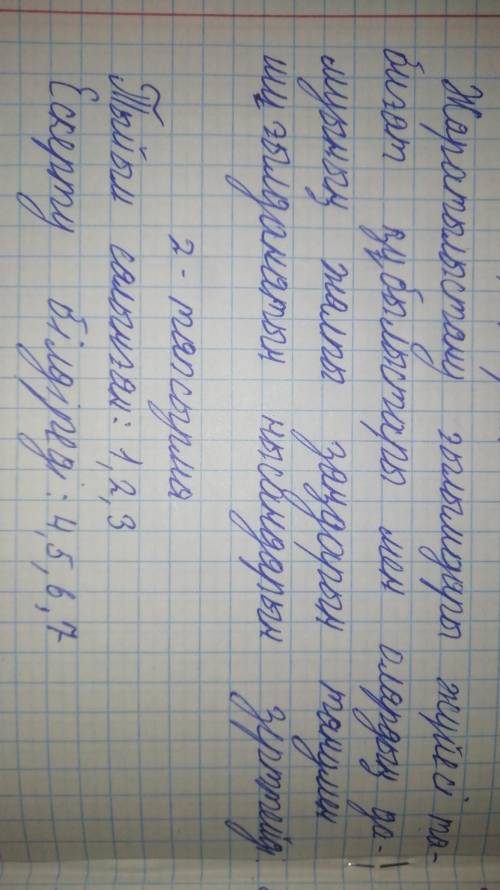 Жаратылыстану ғылымдары жүйесі та-
биғат құбылыстары мен олардың да-
муының жалпы заңдарын танумен
шұғылданатын нысандарын зерттейді
2-тапсырма
Тыйым салынған: 1,2,3
Ескерту білдіреді: 4,5,6,7